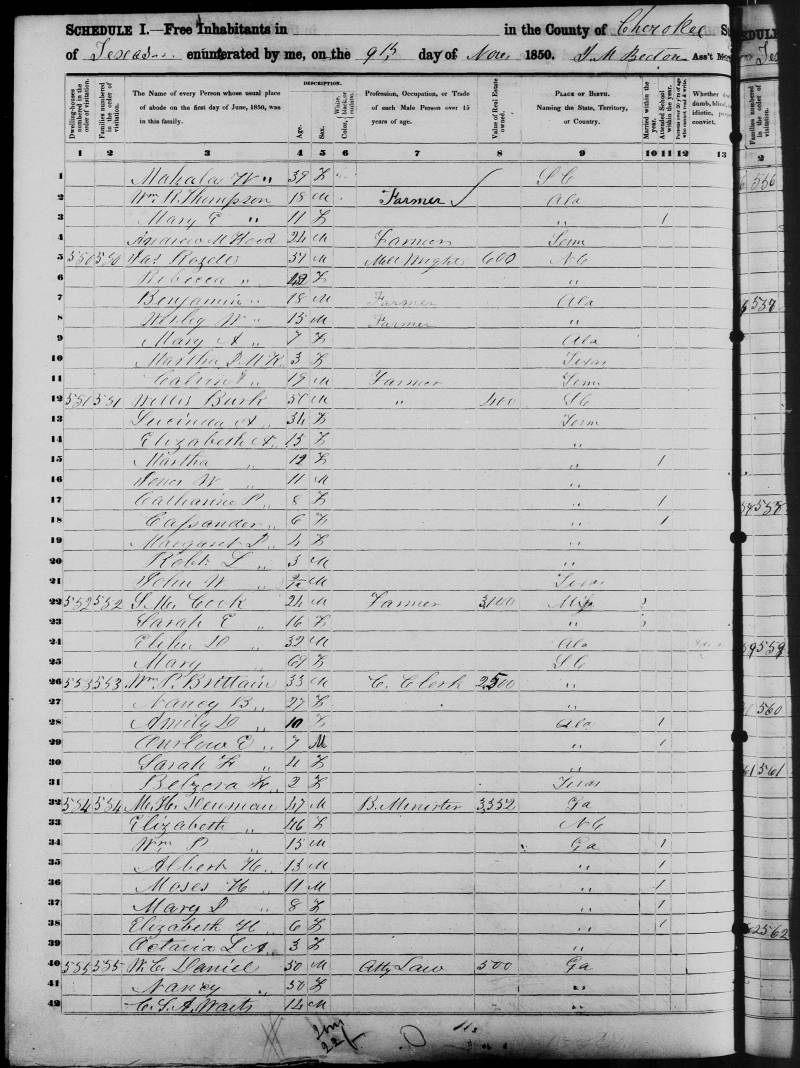 SCHEDULE I.—Free Inhabitants in in the County of Cherokee
of Texas enumerated by me, on the 9th day of Nov. 1850. Ass't
Dwelling-houses numbered in the order of visitation.
Families numbered in the order of visitation.
The Name of every Person whose usual place of abode on the first day of June, 1850, was in this family.
DESCRIPTION.
Age.
Sex.
Color, White, black, or mulatto.
Profession, Occupation, or Trade of each Male Person over 15 years of age.
Value of Real Estate owned.
PLACE OF BIRTH. Naming the State, Territory, or Country.
Married within the year.
Attended School within the year.
Persons over 20 y'rs of age who cannot read & write.
Whether deaf, dumb, blind, idiotic, convict.
1 2 3 4 5 6 7 8 9 10 11 12 13
1 Mahala W " 39 F S C
2 Wm R. Thompson 18 M Farmer Ala
3 Mary E " 11 F " 1
4 Andrew M Hood 24 M Farmer Tenn
5 550 550 Jas Rozelle 51 M 600 N C
6 Rebecca " F "
7 Benjamin " 18 M Farmer Ala
8 Wesley W " 15 M Farmer "
9 Mary A " 7 F Ala
10 Martha 3 F Texas
11 Calvin " 19 M Farmer Tenn
12 551 551 Willis Burk 50 M " 400 S C
13 Lucinda A " 34 F Tenn
14 Elizabeth A " 15 F "
15 Martha " 12 F " 1
16 W " 11 M "
17 Catharine P " 8 F " 1
18 Cassander " 6 F " 1
19 Margaret " 4 F "
20 Robt L " 3 M "
21 John W " M Texas
22 552 552 Cook 24 M Farmer 3,100 Miss
23 Sarah E " 16 F "
24 Elihu D " 32 M Ala
25 Mary " 61 F S C
26 553 553 Wm P. Brittain 33 M C. Clerk 2500 "
27 Nancy B " 27 F "
28 D " 10 F Ala 1
29 E " 7 M " 1
30 Sarah " 4 F "
31 Belzora " 2 F Texas
32 554 554 M. H. Denman 47 M B. Minister 3352 Ga
33 Elizabeth " 46 F N C
34 Wm P " 15 M Ga 1
35 Albert H " 13 M " 1
36 Moses H " 11 M " 1
37 Mary " 8 F " 1
38 Elizabeth H " 6 F " 1
39 Octavia " 3 F "
40 555 555 W. C. Daniel 50 M Atty Law 500 Ga
41 Nancy " 50 F "
42 14 M "
SCHEDULE
of
Families numbered in the order of visitation.
2
556
557
558
559
560
561
562